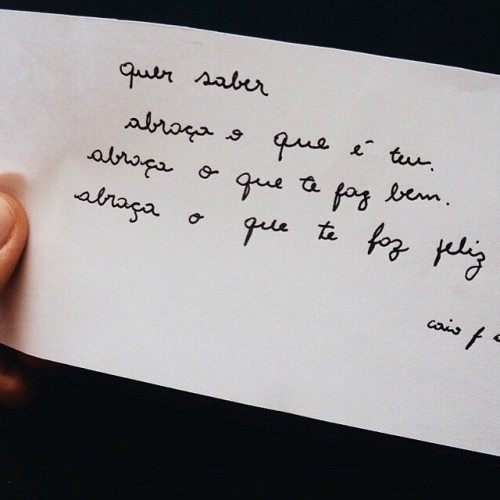 quer saber
abraça o que é teu.
abraça o que te faz bem.
abraça o que te faz feliz.
caio f